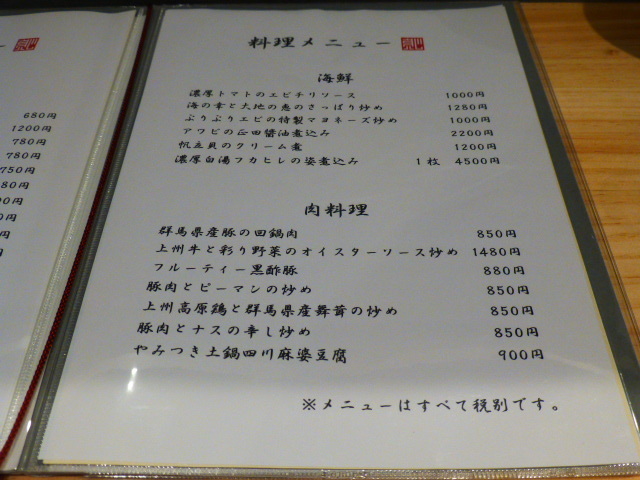 680円
1200円
780円
780円
750円
料理メニュー
海鮮
濃厚トマトのエビチリソース 1000円
海の幸と大地の恵のさっぱり炒め 1280円
ぷりぷりエビの特製マヨネーズ炒め 1000円
アワビの正田醤油煮込み 2200円
帆立貝のクリーム煮 1200円
濃厚白湯フカヒレの姿煮込み 1枚 4500円
肉料理
群馬県産豚の回鍋肉 850円
上州牛と彩り野菜のオイスターソース炒め 1480円
フルーティー黒酢豚 880円
豚肉とピーマンの炒め 850円
上州高原鶏と群馬県産舞茸の炒め 850円
豚肉とナスの辛し炒め 850円
やみつき土鍋四川麻婆豆腐 900円
※メニューはすべて税別です。